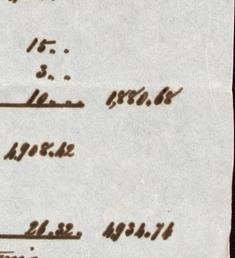 15..
3..
10.... 1,880.68
4908.42
26.32. 4934.74